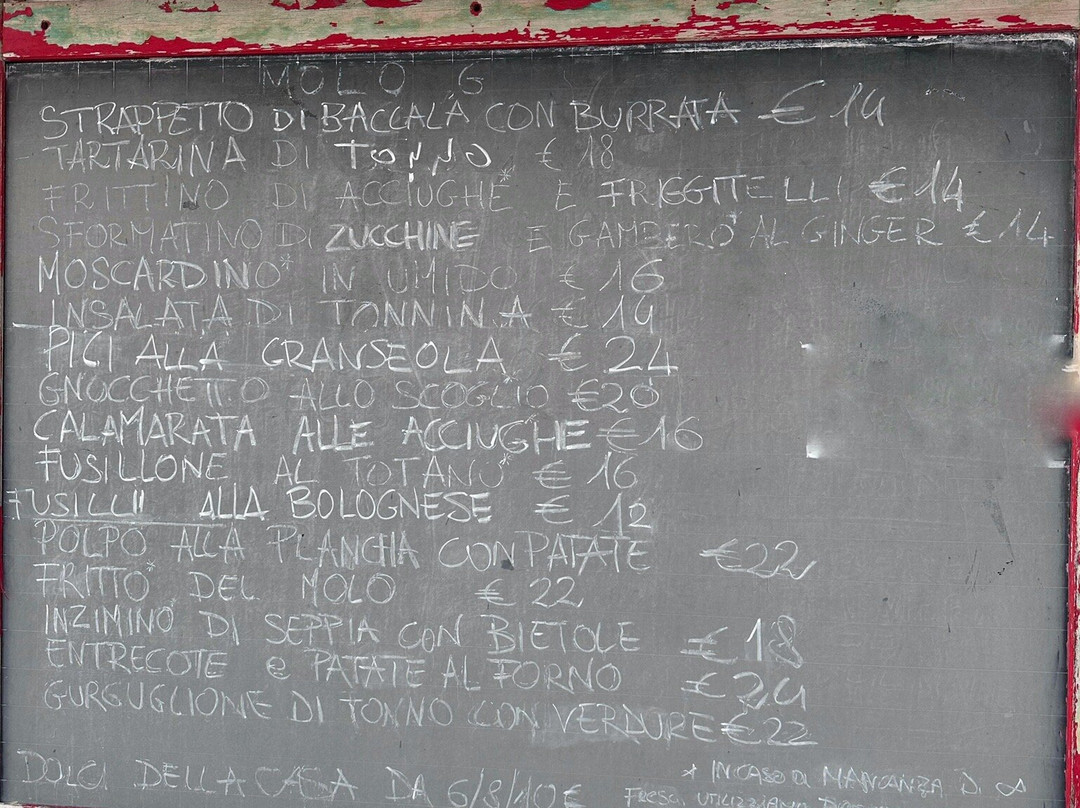 MOLO G
STRAPPETTO DI BACCALÀ CON BURRATA € 14
TARTARINA DI TONNO € 18
FRITTINO DI ACCIUGHE* E FRIGGITELLI € 14
SFORMATINO DI ZUCCHINE E GAMBERO* AL GINGER € 14
MOSCARDINO* IN UMIDO € 16
INSALATA DI TONNINA € 14
PICI ALLA GRANSEOLA € 24
GNOCCHETTO ALLO SCOGLIO* €20
CALAMARATA ALLE ACCIUGHE € 16
FUSILLONE AL TOTANO* € 16
FUSILLI ALLA BOLOGNESE € 12
POLPO ALLA PLANCHA CON PATATE €22
FRITTO* DEL MOLO € 22
INZIMINO DI SEPPIA CON BIETOLE € 18
ENTRECOTE e PATATE AL FORNO € 24
GURGUGLIONE DI TONNO CON VERDURE €22
DOLCI DELLA CASA DA 6/8/10€
* IN CASO DI MANCANZA DI
UTILIZZIAMO